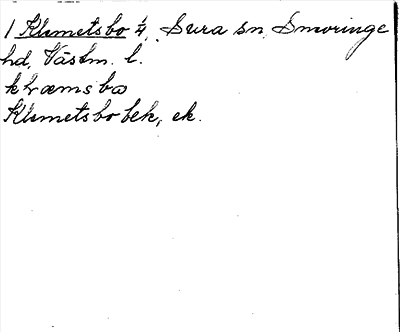 1 Klemetsbo ¼, Sura sn, Snevringe
hd, Västm. l.
klæmsbω
Klemetsbo bek, ek.